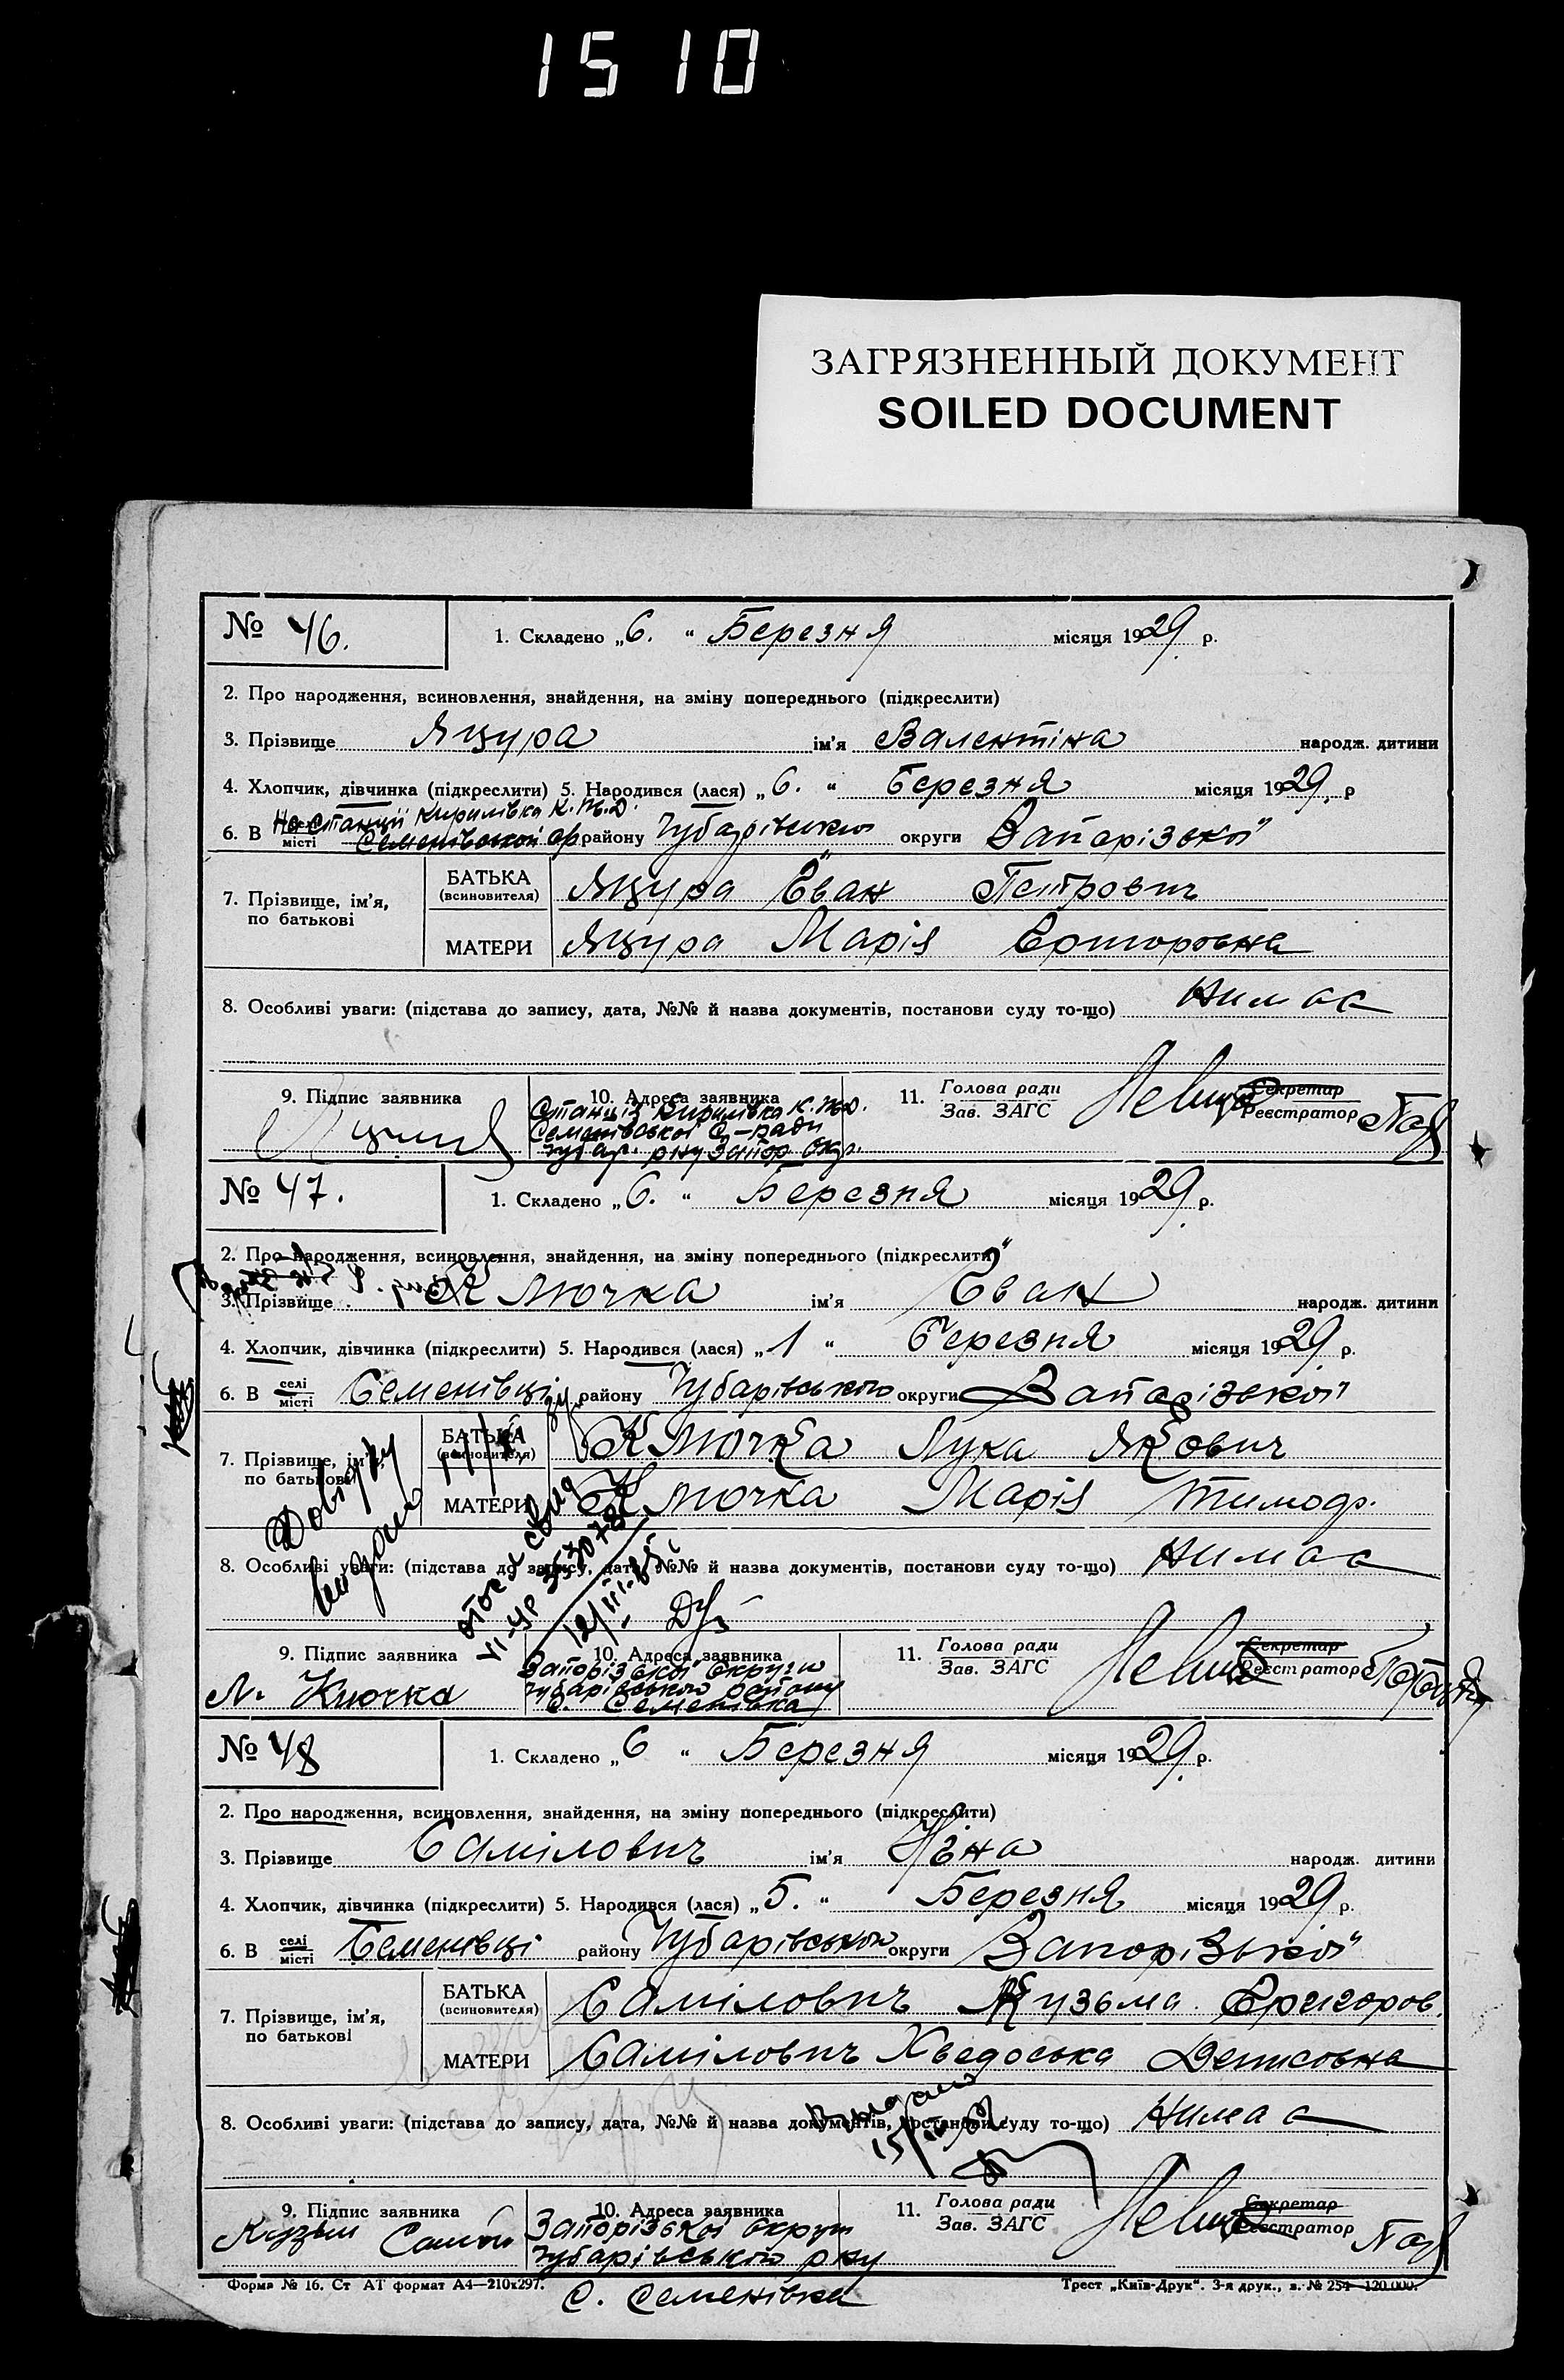 1510
ЗАГРЯЗНЕННЫЙ ДОКУМЕНТ
SOILED DOCUMENT
№ 46. 1. Складено „6. “ Березня місяця 1929 р.
2. Про народження, всиновлення, знайдення, на зміну попереднього (підкреслити)
3. Прізвище Яцура ім'я Валентіна народж. дитини
4. Хлопчик, дівчинка (підкреслити) 5. Народився (лася) „6. “ Березня місяця 1929 р
На станції Кирилівка К.Ж.Д.
6. В селі місті Семенівской ср району Чубарівського округи Запарізької
7. Прізвище, ім'я, по батькові
БАТЬКА (всиновителя) Яцура Еван Петрович
МАТЕРИ Яцура Марія Григоровна
8. Особливі уваги: (підстава до запису, дата, №№ й назва документів, постанови суду то-що) нимає
9. Підпис заявника 10. Адреса заявника 11. Голова ради Зав. ЗАГС Секретар Реєстратор
Станція Кирилівка К.Ж.Д.
Семенівської С-ради
Чубар. р-ну Запор. Окр.
№ 47. 1. Складено „6. “ Березня місяця 1929 р.
2. Про народження, всиновлення, знайдення, на зміну попереднього (підкреслити)
3. Прізвище Ключка ім'я Еван народж. дитини
4. Хлопчик, дівчинка (підкреслити) 5. Народився (лася) „1 “ Березня місяця 1929 р.
6. В селі місті Семенівці району Чубарівського округи Запарізької
7. Прізвище, ім'я, по батькові
БАТЬКА (всиновителя) Ключка Лука Якович
МАТЕРИ Ключка Марія Тимоф.
Довідку видано
8. Особливі уваги: (підстава до запису, дата, №№ й назва документів, постанови суду то-що) нимає
9. Підпис заявника 10. Адреса заявника 11. Голова ради Зав. ЗАГС Секретар Реєстратор
Л. Ключка
Запорізької Округи
Чубарівського району
с. Семенівка
№ 48 1. Складено „6 “ Березня місяця 1929 р.
2. Про народження, всиновлення, знайдення, на зміну попереднього (підкреслити)
3. Прізвище Самілович ім'я Ніна народж. дитини
4. Хлопчик, дівчинка (підкреслити) 5. Народився (лася) „5. “ Березня місяця 1929 р.
6. В селі місті Семенівці району Чубарівського округи Запорізької
7. Прізвище, ім'я, по батькові
БАТЬКА (всиновителя) Самілович Кузьма Григоров.
МАТЕРИ Самілович Хведоська Денисовна
Видано
8. Особливі уваги: (підстава до запису, дата, №№ й назва документів, постанови суду то-що) нимає
9. Підпис заявника 10. Адреса заявника 11. Голова ради Зав. ЗАГС Секретар Реєстратор
Запорізької округи
Чубарівського р-ну
с. Семенівка
Форма № 16. Ст АТ формат А4—210х297. Трест „Київ-Друк“. 3-я друк., з. № 254—120.000.